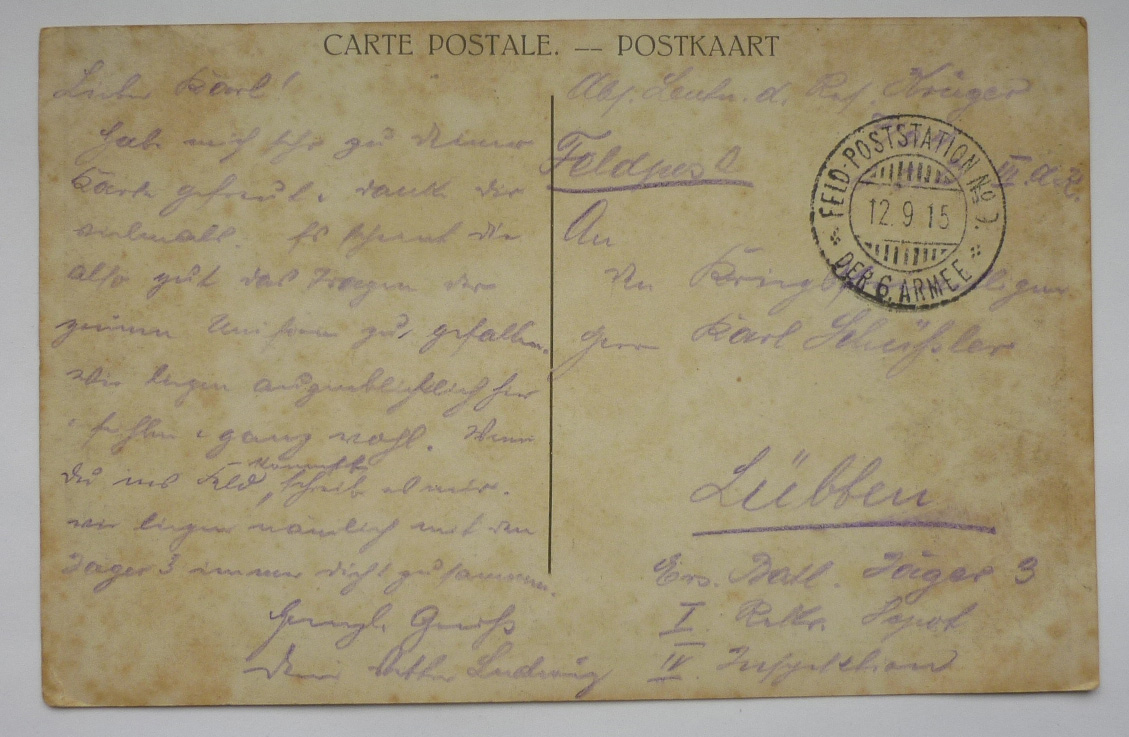 CARTE POSTALE. — POSTKAART
Lieber Karl!
Habe mich sehr zu Deiner
Karte gefreut, dank Dir
vielmals. Es scheint Dir
also gut das Tragen der
grünen Uniform zu gefallen.
Wir liegen augenblicklich hier
ganz wohl. Wenn
Du ins Feld kommst, schreib es mir.
wir liegen nämlich mit den
Jäger 3 immer dicht zusammen.
Herzl. Gruß
Dein Vetter Ludwig
Abs. Leutn. d. Res. Krüger
Feldpost
FELD-POSTSTATION No
12.9.15
DER 6. ARMEE
An
den
Herrn Karl Schüßler
Lübben
Ers. Batl. Jäger 3
I. Rekr. Depot
IV. Inspektion